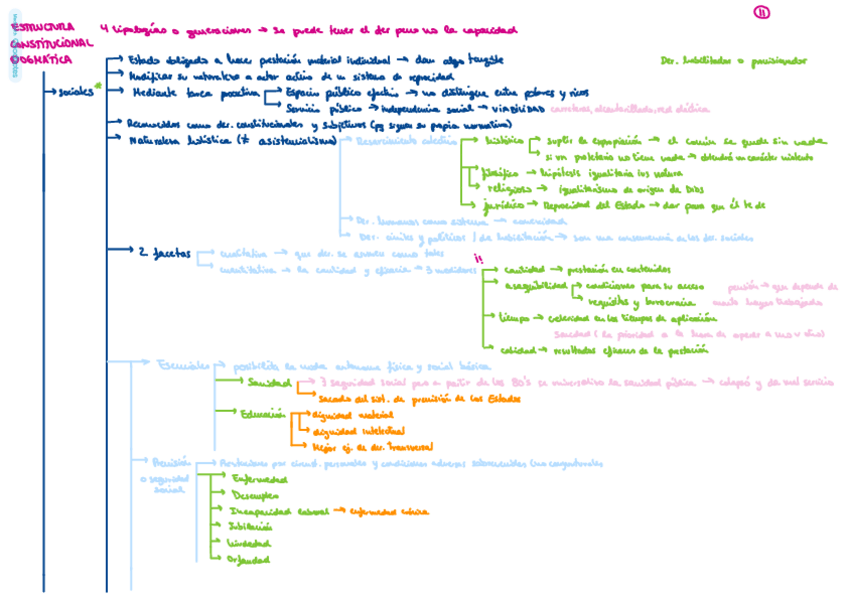 11
ESTRUCTURA CONSTITUCIONAL DOGMÁTICA
4 tipologías o generaciones → se puede tener el der pero no la capacidad
Der. habilitados o provisionador
→ sociales *
→ Estado obligado a hacer prestación material individual → dan algo tangible
→ Modificar su naturaleza a actor activo de un sistema de
→ Mediante tarea proactiva
→ Espacio público efectivo → no distingue entre pobres y ricos
→ Servicio público → independencia social → VIABILIDAD carreteras, alcantarillado, red eléctrica
→ Reconocidos como der. constitucionales y subjetivos (pq siguen su propia normativa)
→ Naturaleza holística (≠ asistencialismo)
→ Resarcimiento colectivo
→ histórico
→ suplir la expropiación → el común se queda sin nada
→ si un proletario no tiene nada → obtendrá un carácter violento
→ filosófico → hipótesis igualitaria ius natura
→ religioso → igualitarismo de origen de Dios
→ jurídico → Reprocidad del Estado → dar para que él te de
→ Der. humanos como sistema → comunidad
→ Der. civiles y políticos / de habilitación → son una consecuencia de los der. sociales
→ 2 facetas
→ cualitativa → que der. se arraiguen como tales
→ cuantitativa → la cantidad y eficacia → 3 medidores
¡!
→ cantidad → prestación en contenidos
→ asequibilidad
→ condiciones para su acceso
→ requisitos y burocracia
pensión → que depende de cuanto hayas trabajado
→ tiempo → celeridad en los tiempos de aplicación
sanidad ( la prioridad a la hora de operar a uno u otro)
→ calidad → resultados eficaces de la prestación
→ Esenciales → posibilita la nota autónoma física y social básica
→ Sanidad
→ ∃ seguridad social pero a partir de los 80's se universaliza la sanidad pública → colapsó y da mal servicio
→ sacado del sist. de previsión de los Estados
→ Educación
→ dignidad material
→ dignidad intelectual
→ Mejor ej. de der. transversal
→ Previsión o seguridad social
→ Prestaciones por circunst. personales y condiciones adversas sobrevenidas (no coyunturales
→ Enfermedad
→ Desempleo
→ Incapacidad laboral → enfermedad crónica
→ Jubilación
→ Viudedad
→ Orfandad